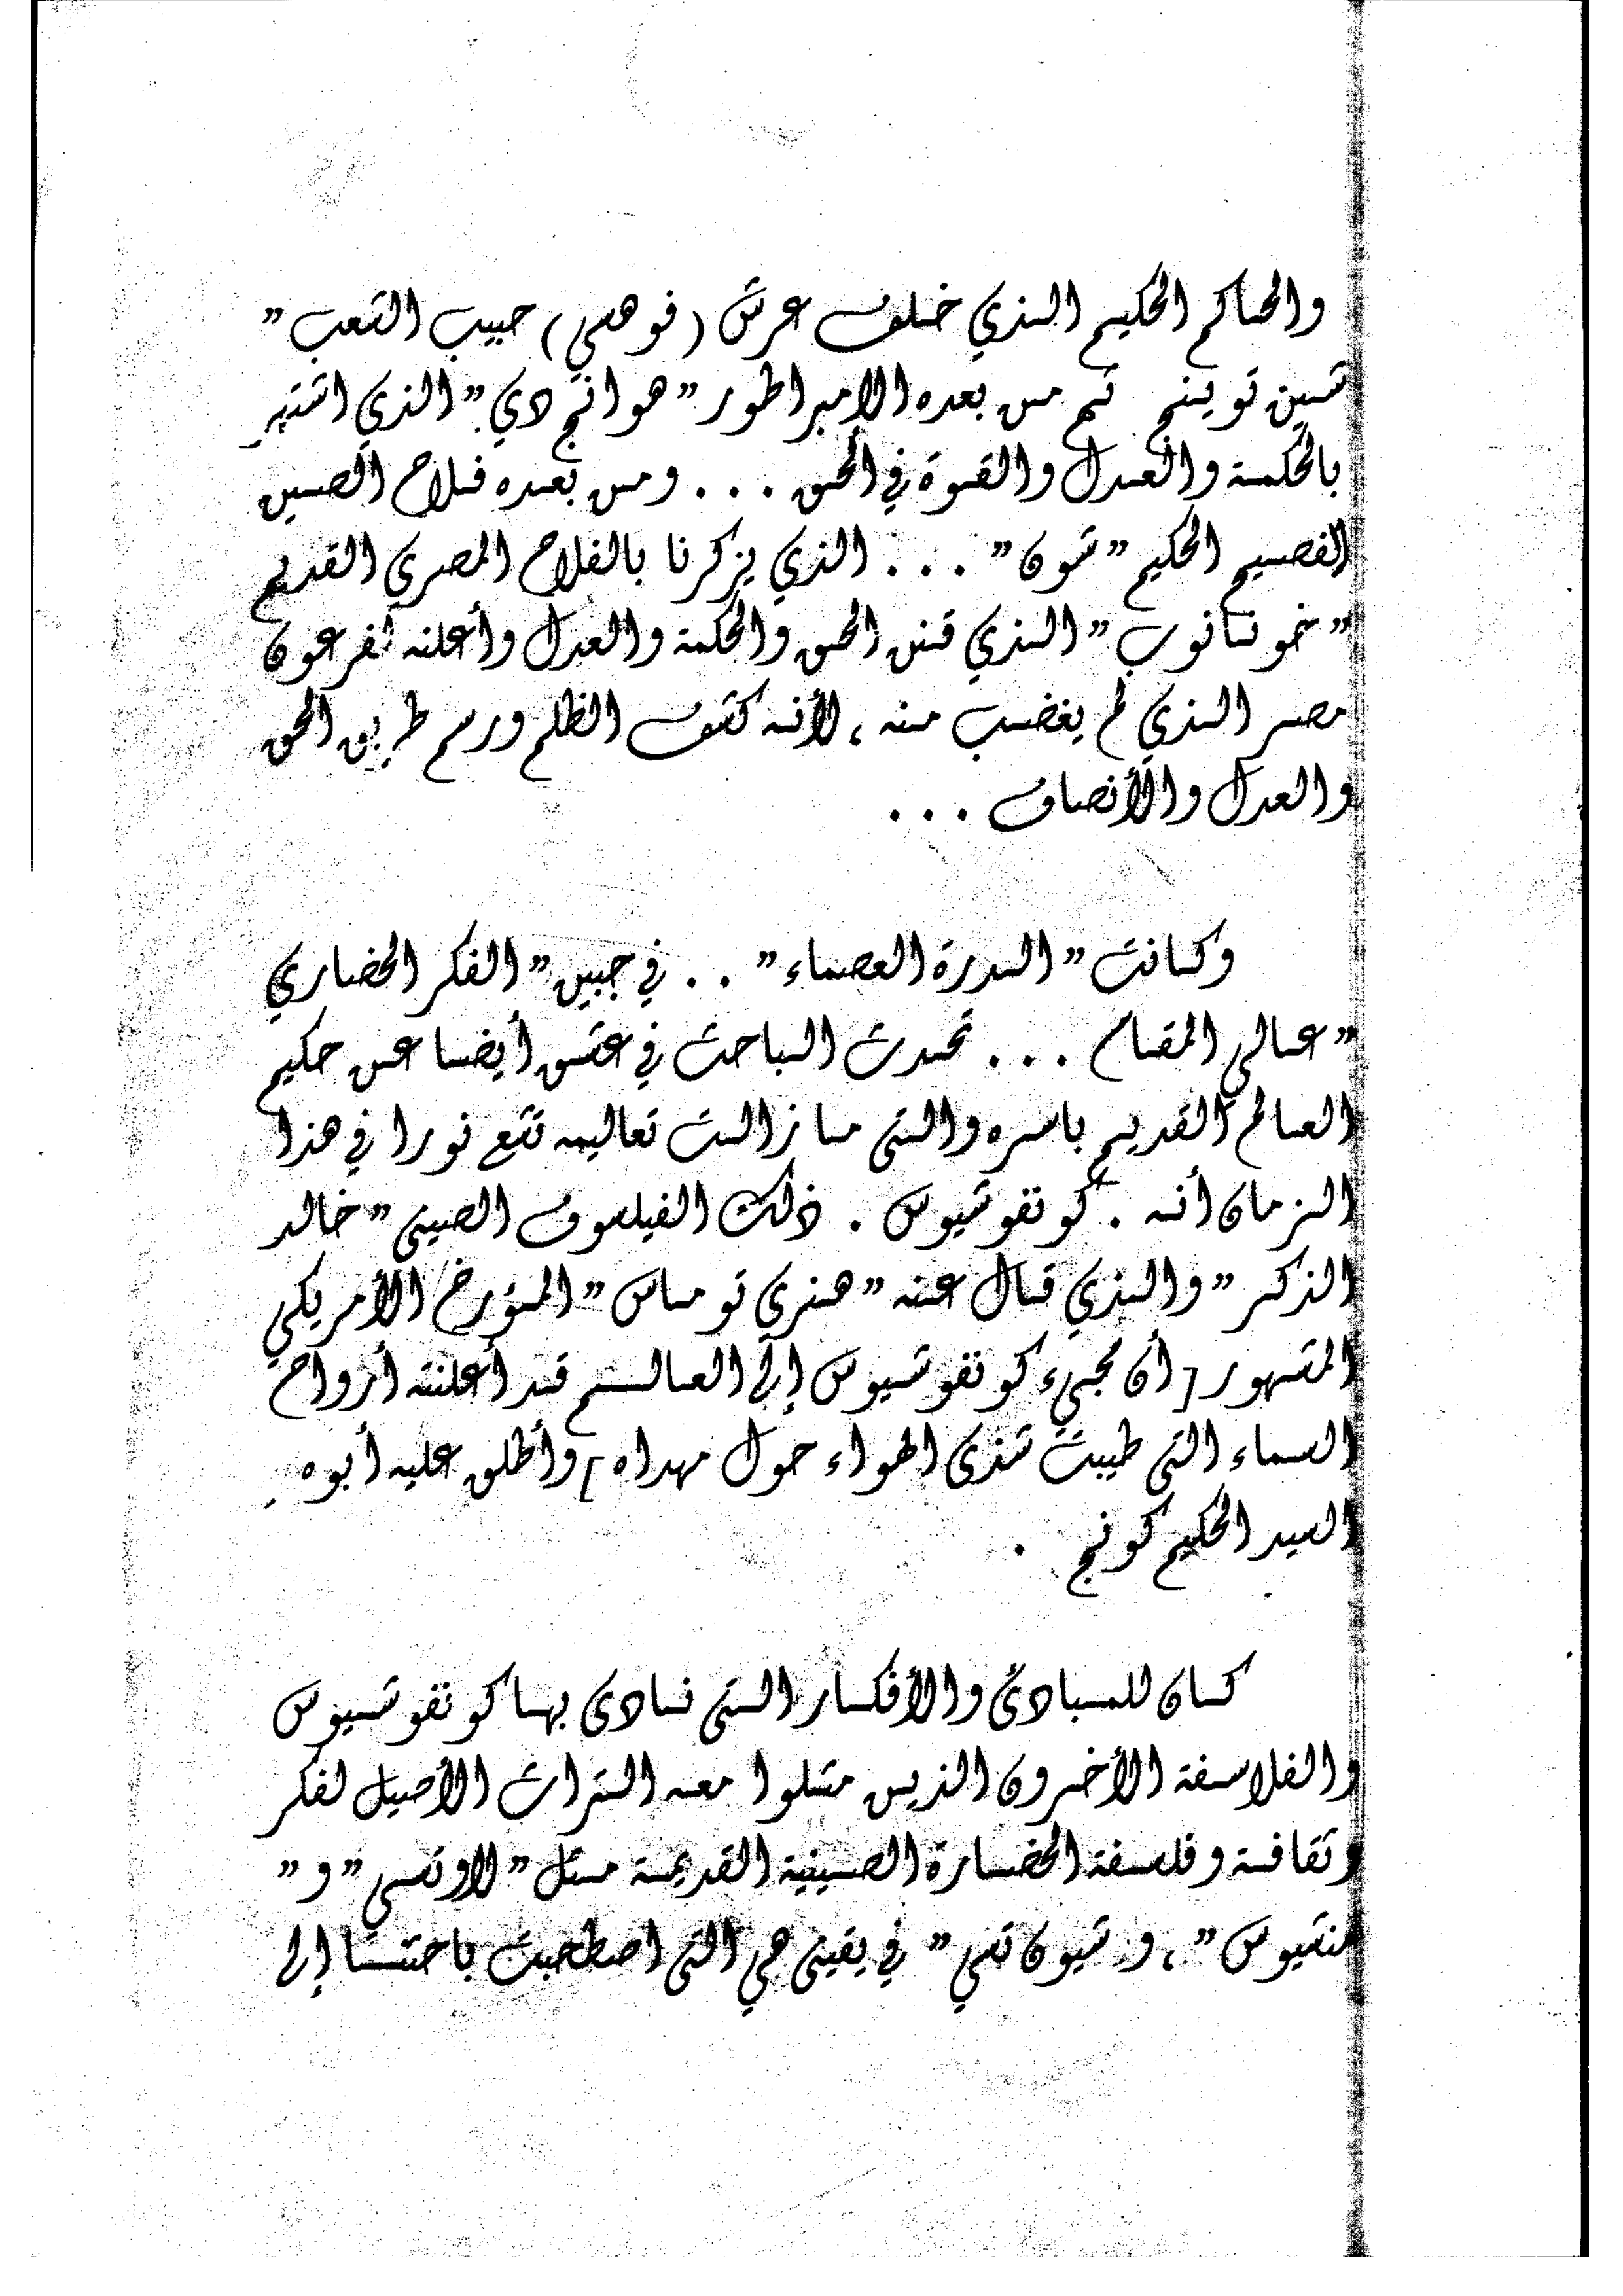 والحاكم الحكيم الذي خلف عرش (فوهسي) حبيب الشعب "
شين توينج ثم من بعده الإمبراطور "هوانج دي" الذي اشتهر
بالحكمة والعدل والقوة في الحق . . . ومن بعده فلاح الصين
الفصيح الحكيم "شون" . . . الذي يذكرنا بالفلاح المصرى القديم
"خمو نانوب" الذي قنن الحق والحكمة والعدل وأعلنه لفرعون
مصر الذي لم يغضب منه ، لأنه كشف الظلم ورسم طريق الحق
والعدل والأنصاف . . .
وكانت "الدرة العصماء" . . في جبين "الفكر الحضاري
"عالي المقام . . . تحدث الباحث في عشق أيضا عن حكيم
العالم القديم باسره والتى ما زالت تعاليمه تشع نورا في هذا
الزمان أنه . كونفوشيوس . ذلك الفيلسوف الصينى "خالد
الذكر" والذي قال عنه "هنرى توماس" المؤرخ الأمريكي
المشهور [ أن مجيء كونفوشيوس إلى العالم قد أعلنته أرواح
السماء التى طيبت شذى الهواء حول مهداه ] وأطلق عليه أبوه
السيد الحكيم كونج .
كان للمبادئ والأفكار التى نادى بها كونفوشيوس
والفلاسفة الأخرون الذين مثلوا معه التراث الأصيل لفكر
وثقافة وفلسفة الحضارة الصينية القديمة مثل "لاوتسى" و "
منشيوس" ، و شيون تسي" في يقينى هي التى اصطحبت باحثنا إلى